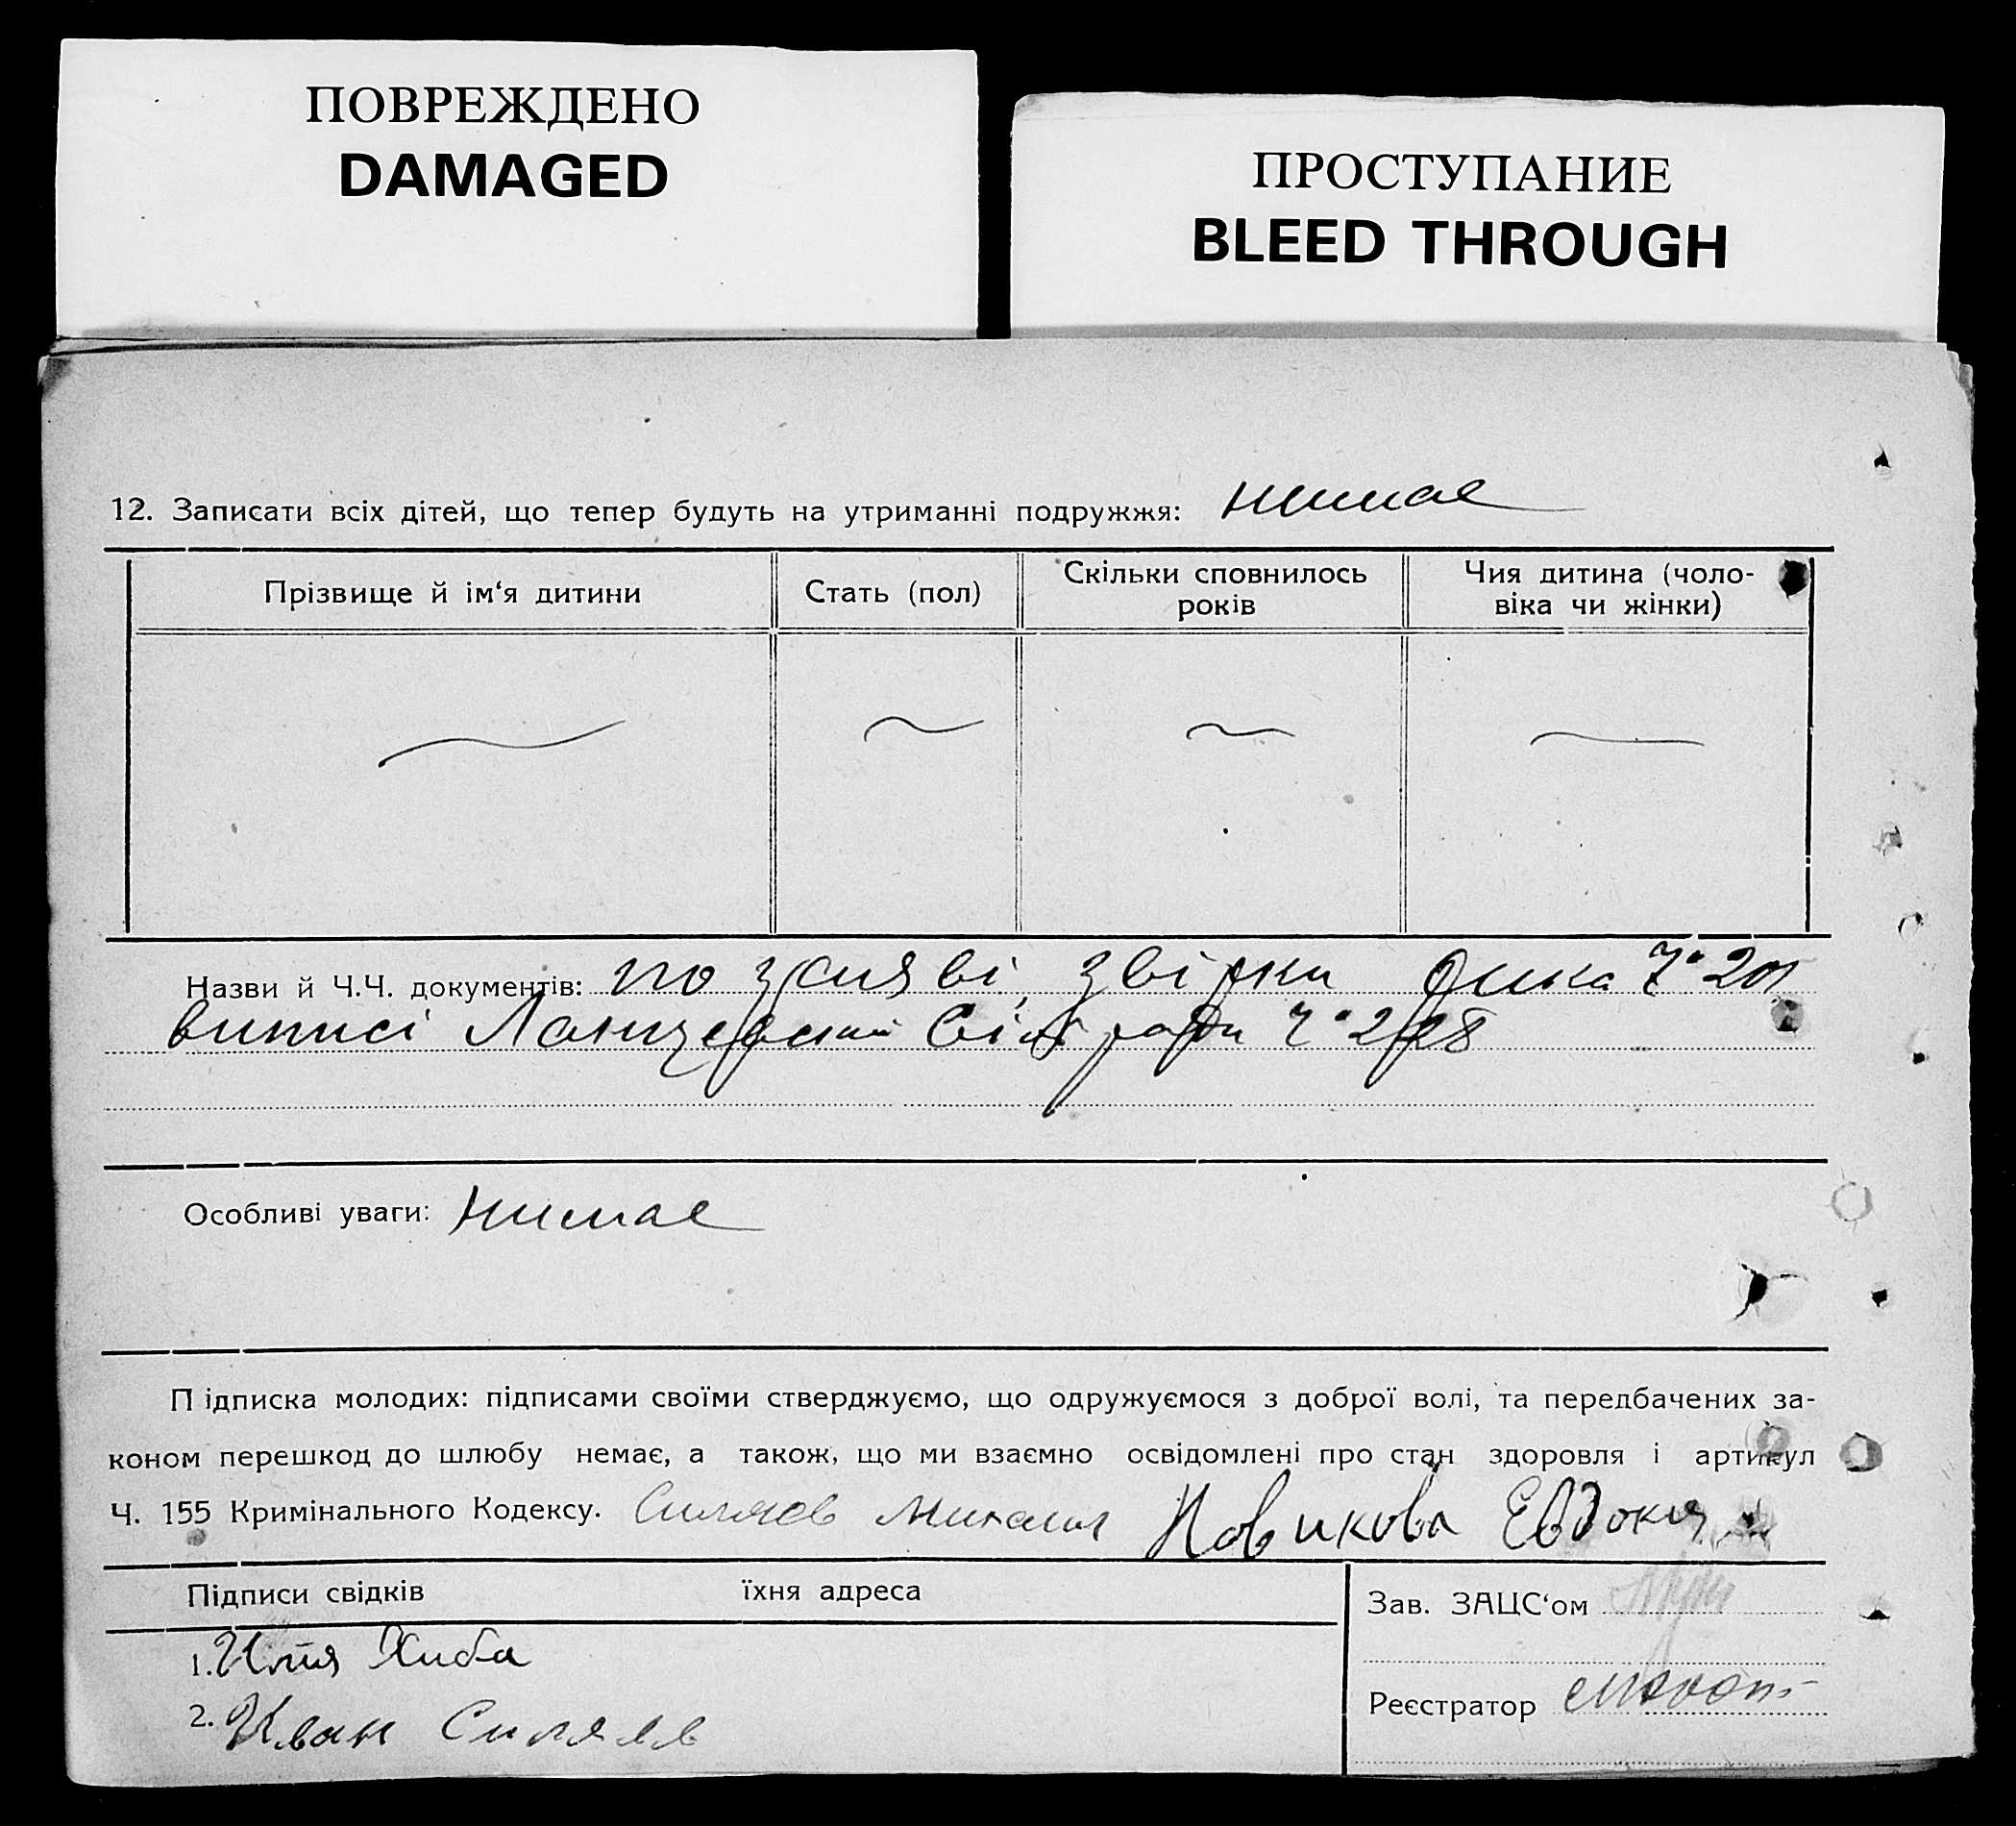 ПОВРЕЖДЕНО
DAMAGED
ПРОСТУПАНИЕ
BLEED THROUGH
12. Записати всіх дітей, що тепер будуть на утриманні подружжя: нимає
Прізвище й ім‘я дитини
Стать (пол)
Скільки сповнилось
років
Чия дитина (чоло-
віка чи жінки)
Назви й Ч.Ч. документів: по заяві, звірки
виписі сіл ради
Особливі уваги: нимає
Підписка молодих: підписами своїми стверджуємо, що одружуємося з доброї волі, та передбачених за-
коном перешкод до шлюбу немає, а також, що ми взаємно освідомлені про стан здоровля і артикул
Ч. 155 Кримінального Кодексу. Силяєв Михаил Новикова Евдокия
Підписи свідків їхня адреса
Зав. ЗАЦС‘ом
1. Илія Хиба
2. Иван Силяев
Реєстратор